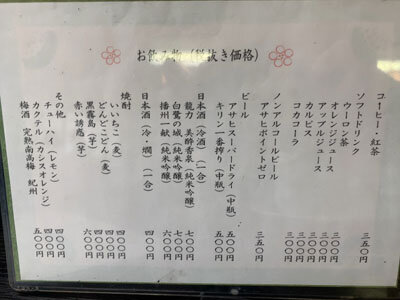 お飲み物（税抜き価格）
コーヒー・紅茶 三五〇円
ソフトドリンク
ウーロン茶 三〇〇円
オレンジジュース 三〇〇円
アップルジュース 三〇〇円
カルピス 三〇〇円
コカコーラ 三〇〇円
ノンアルコールビール
アサヒポイントゼロ 三五〇円
ビール
アサヒスーパードライ（中瓶） 五五〇円
キリン一番搾り（中瓶） 五五〇円
日本酒（冷酒）（一合）
龍力 美酔香泉（純米吟醸） 七〇〇円
白鷺の城（純米吟醸） 七〇〇円
播州一献（純米吟醸） 六〇〇円
日本酒（冷・燗）（一合） 四〇〇円
焼酎
いいちこ（麦） 四〇〇円
どんどこどん（麦） 四〇〇円
黒霧島（芋） 四〇〇円
赤い誘惑（芋） 六〇〇円
その他
チューハイ（レモン） 四〇〇円
カクテル（カシスオレンジ） 四〇〇円
梅酒 完熟南高梅 紀州 五〇〇円